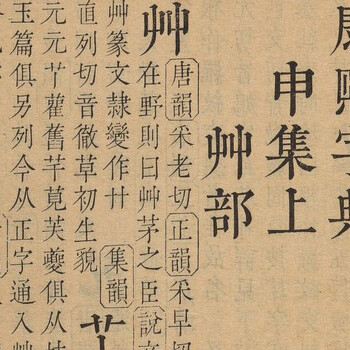 康熙字典
申集上
艸部
艸
唐韻采老切正韻采早切
在野則曰艸茅之臣說文
艸篆文隷變作艹
集韻
直列切音徹草初生貌
艹
元元艹雚舊芊莧芙夔俱从
玉篇俱另列今从正字通入艸